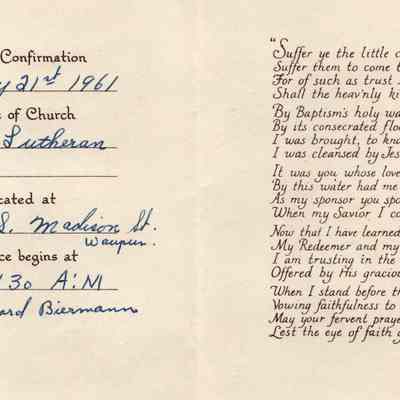 Confirmation
21st 1961
of Church
Lutheran
located at
S. Madison St.
Waupun.
begins at
30 A.M
Biermann
"Suffer ye the little
Suffer them to come
For of such as trust
Shall the heav'nly
By Baptism's holy
By its consecrated
I was brought, to
I was cleansed by
It was you whose
By this water had me
As my sponsor you
When my Savior I
Now that I have learned
My Redeemer and my
I am trusting in the
Offered by His
When I stand before
Vowing faithfulness to
May your fervent
Lest the eye of faith